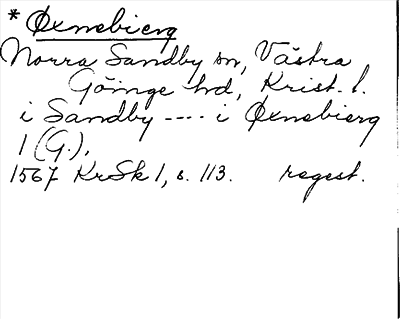 * Øxnebierg
Norra Sandby sn, Västra
Göinge hd, Krist. l.
i Sandby ---- i Øxnebierg
1 (G.).
1567 KrSk 1, s. 113. regest.